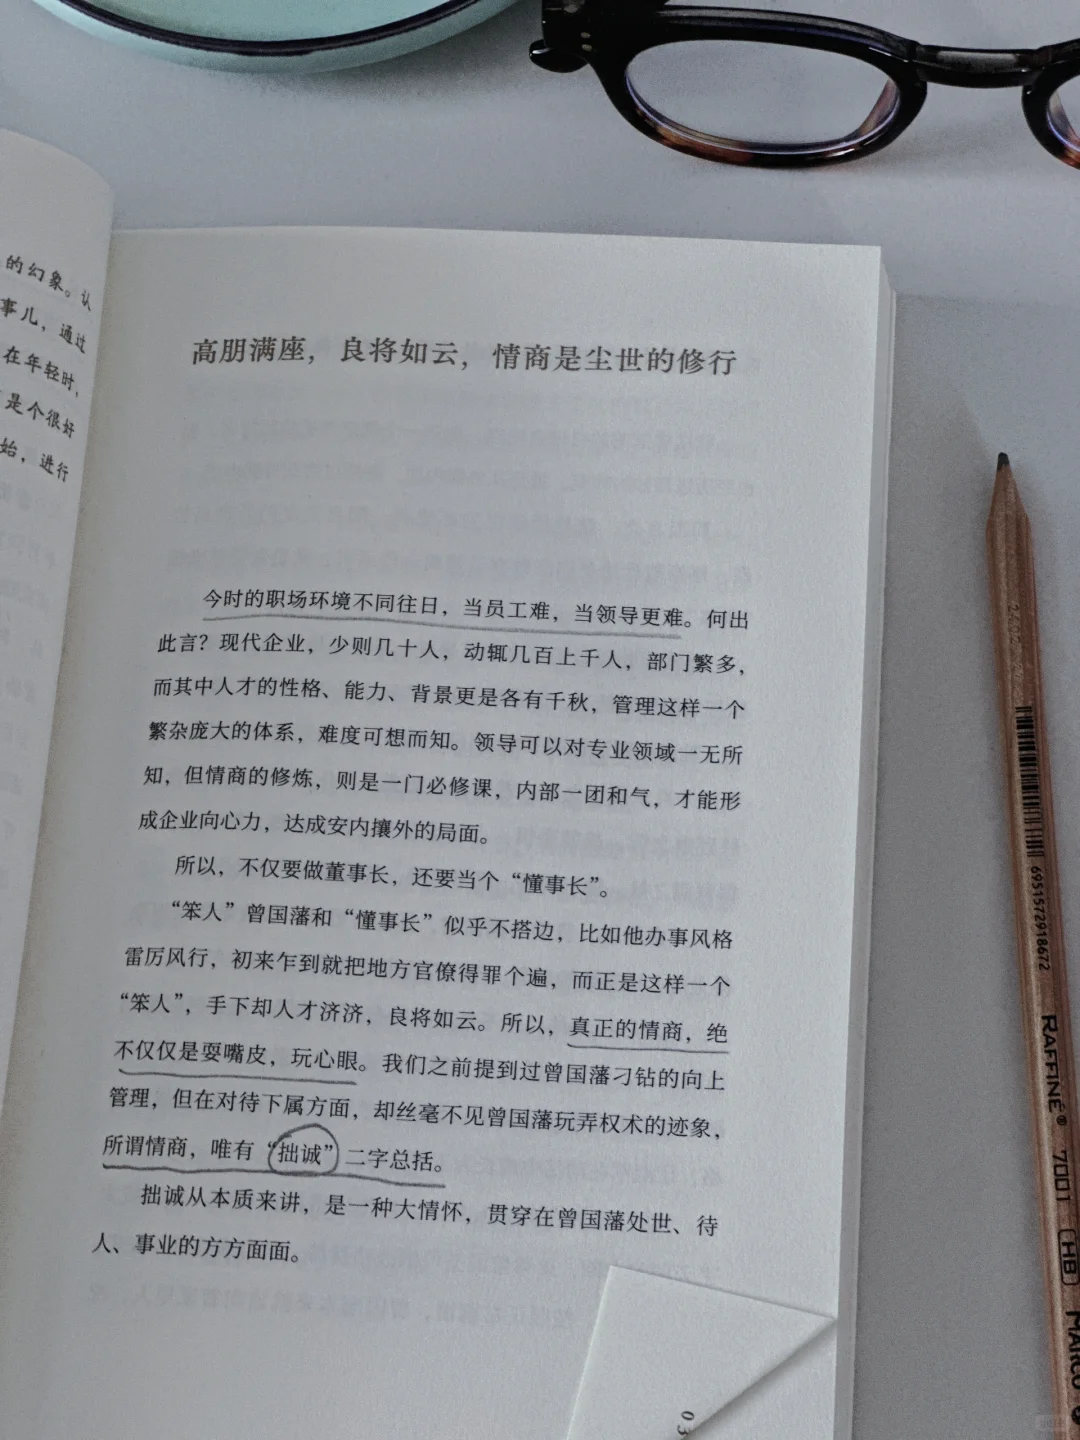 的幻象。认
事儿，通过
在年轻时，
是个很好
始，进行
高朋满座，良将如云，情商是尘世的修行
今时的职场环境不同往日，当员工难，当领导更难。何出
此言？现代企业，少则几十人，动辄几百上千人，部门繁多，
而其中人才的性格、能力、背景更是各有千秋，管理这样一个
繁杂庞大的体系，难度可想而知。领导可以对专业领域一无所
知，但情商的修炼，则是一门必修课，内部一团和气，才能形
成企业向心力，达成安内攘外的局面。
所以，不仅要做董事长，还要当个“懂事长”。
“笨人”曾国藩和“懂事长”似乎不搭边，比如他办事风格
雷厉风行，初来乍到就把地方官僚得罪个遍，而正是这样一个
“笨人”，手下却人才济济，良将如云。所以，真正的情商，绝
不仅仅是耍嘴皮，玩心眼。我们之前提到过曾国藩刁钻的向上
管理，但在对待下属方面，却丝毫不见曾国藩玩弄权术的迹象，
所谓情商，唯有“拙诚”二字总括。
拙诚从本质来讲，是一种大情怀，贯穿在曾国藩处世、待
人、事业的方方面面。
03
6951572918672
RAFFINÉ® 7001 HB MARCO